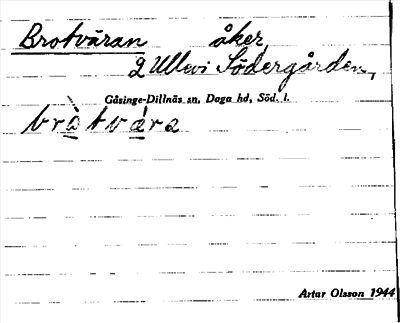 Brotväran åker
2 Ullevi Södergården,
Gåsinge-Dillnäs sn, Daga hd, Söd. l.
bràtvára
Artur Olsson 1944